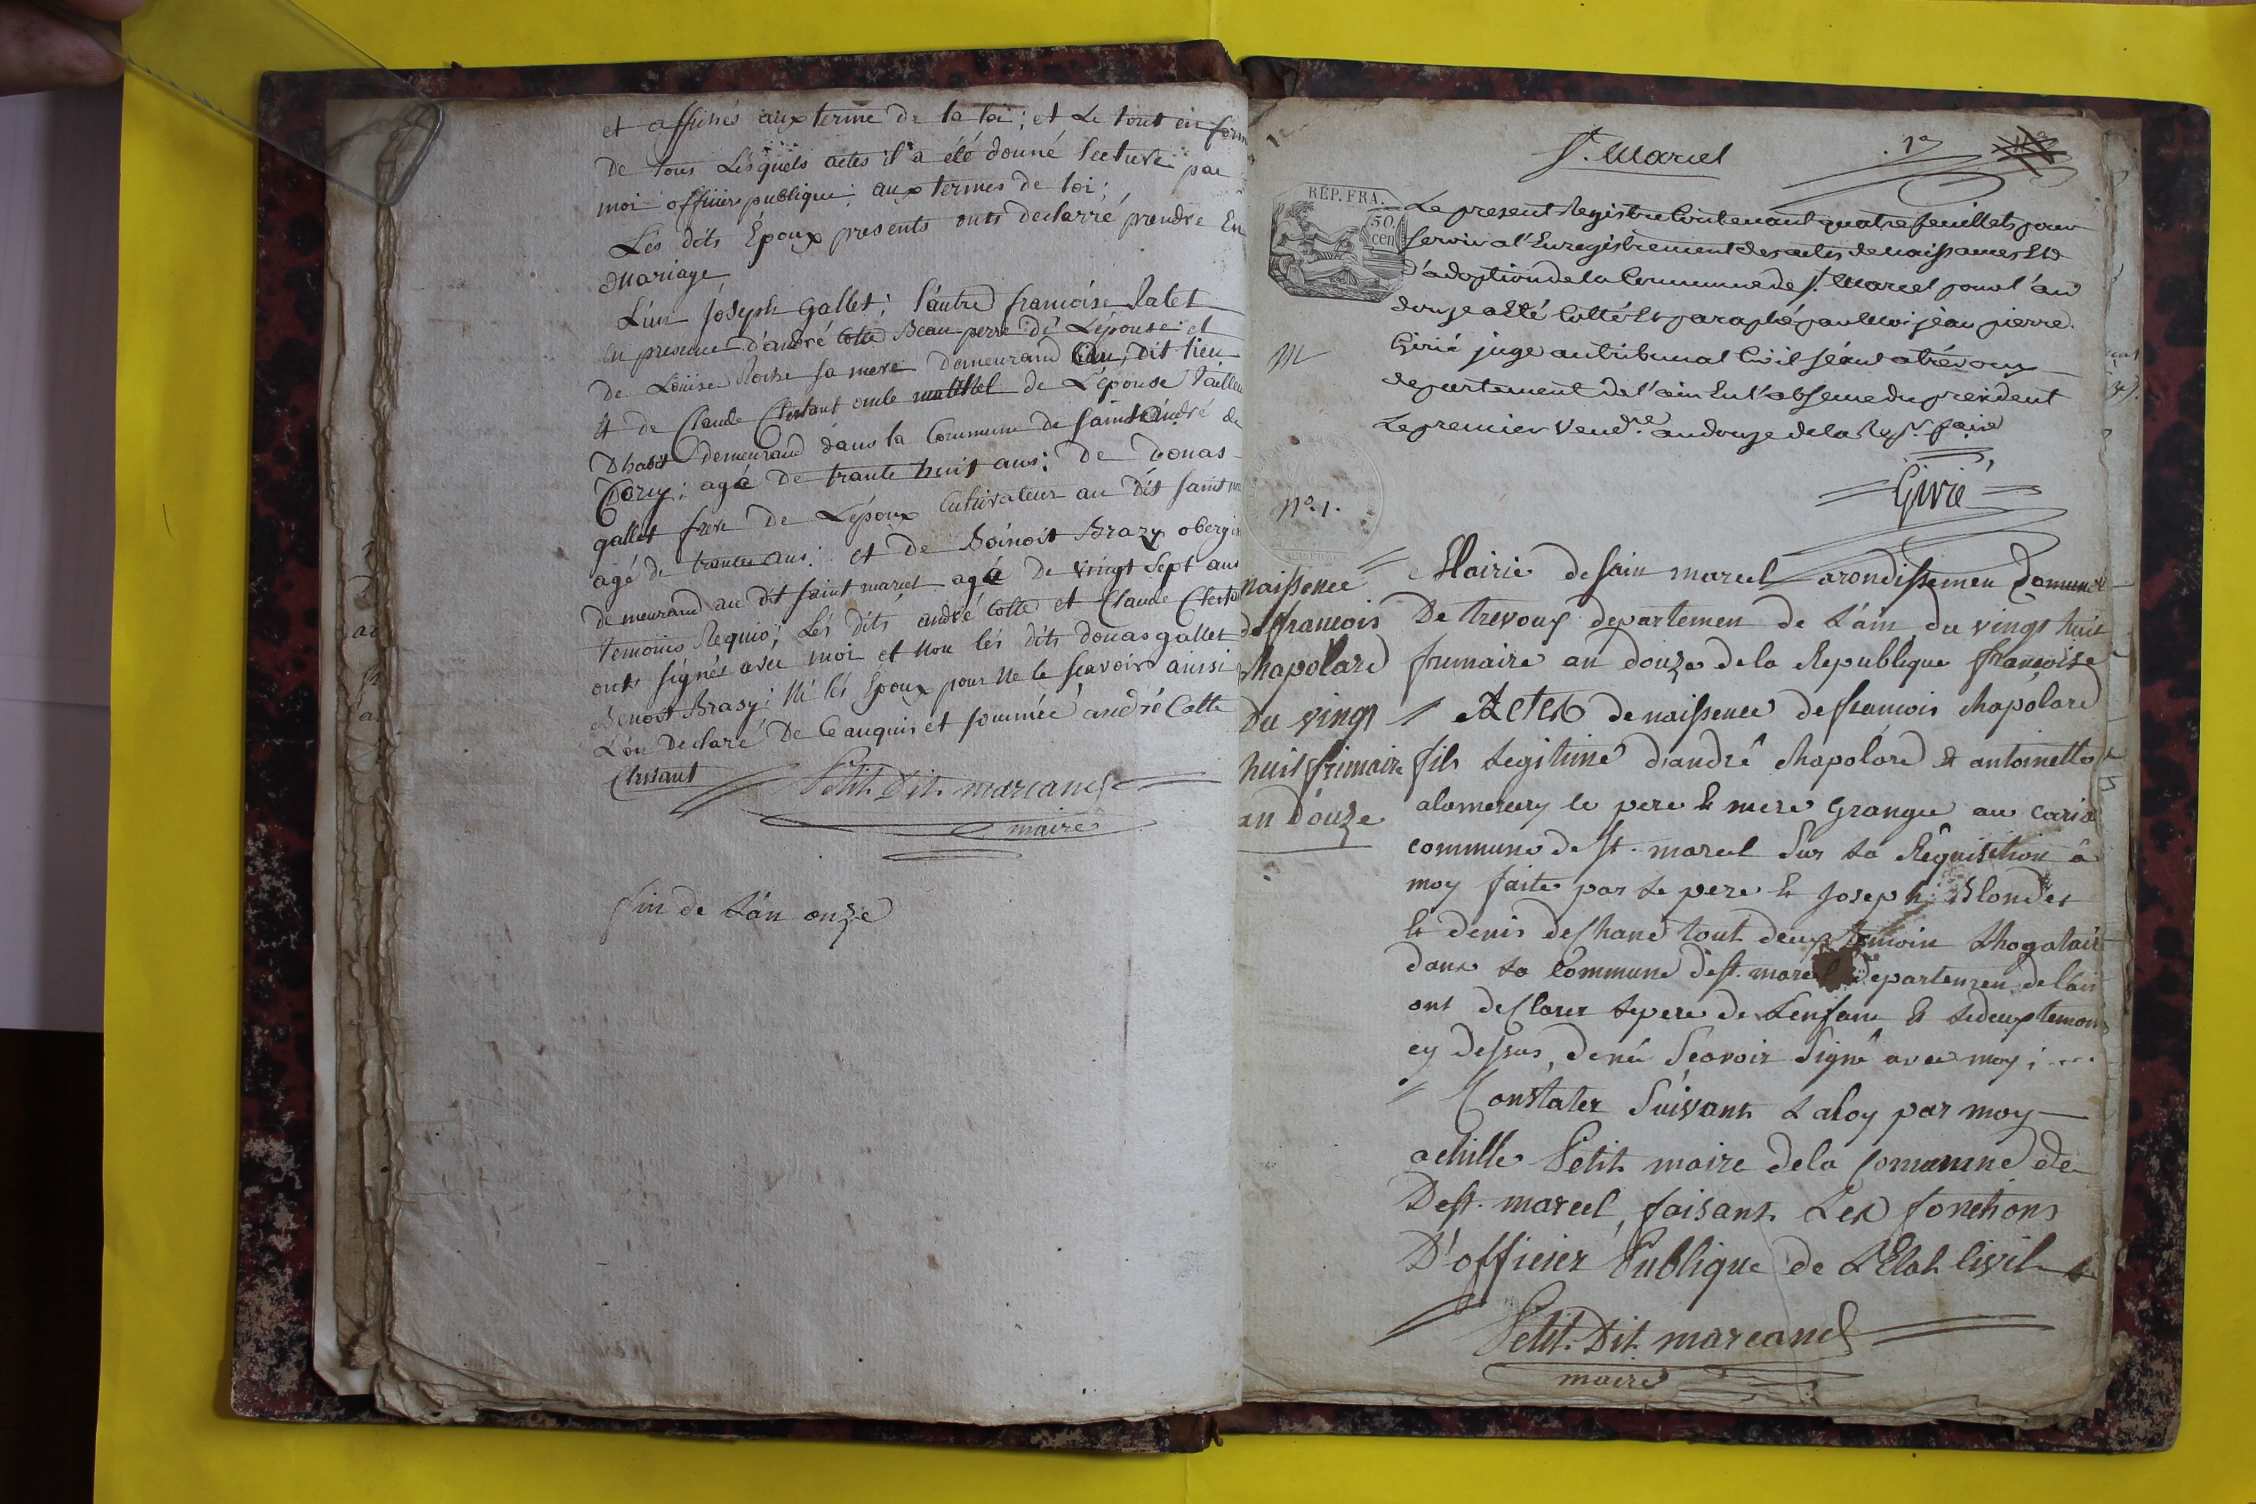 et affichés aux terme de la loi; et Le tout en form
de tous Lesquels actes il a été donné lecture par
moi officier publique; aux termes de loi;
Les dits Époux presents onts declarré prendre En
Mariage
L'un Joseph gallet; l'autre francoise Ralet
en presence d'andré Cotte Beau perre de L'épouse et
de Louise Roche sa mere demeurand au dit lieu
de Claude Clertant oncle de L'épouse tailleu
Dhabit demeurand dans la Commune de saint andré de
Corcy; agé de trante huit ans; de Donas
gallet frere de L'époux Cultivateur au dit saint
agé de trante ans; et de Boinoit Brazy obergi
demeurand au dit saint marcel agé de vingt sept ans
temoins Requis; Les dits andré Cotte et Claude Clerta
onts signés avec moi et non les dits donas gallet
Benoit Brasy; Ni les Epoux pour ne le scavoir ainsi
L'on declaré De Ce anquis et sommée andré Cotte
Clertant
Petit Dit marcand
maire
fin de L'an onze
St. Marcel
1er
RÉP. FRA.
50
cen
Le present Registre Contenant quatre feuillets pour
servir a l'Enregistrement des actes de naissances Et
d'adoption de la Commune de St. Marcel pour l'an
douze a Eté Cotté Et paraphé par Moi jean pierre
Girié juge au tribunal Civil séant a trévoux
departement de l'ain En l'absence du president
Le premier Vend.re an douze de la Rep.
Girié
No. 1.
naissence
de francois
Chapolard
Du vingt
huit frimaire
an Douze
Mairie de sain marcel arondissemen Comunal
De trevoux departemen de L'ain du vingt huit
frimaire an douze de la Republique francoise
Actes de naissence de francois Chapolard
fils Legitime d'andré Chapolard & antoinette
alomerery le pere & mere Grange au
commune de st. marcel Sur La Requisition à
moy faite par Le pere & Joseph Blondet
& denis deChane tout deux temoin
dans La Commune de st. marcel Departemen de lain
ont deClarer Le pere de L'enfant & Le deux temoin
cy Dessus, de ne Scavoir Signé avec moy;
Constater Suivant La loy par moy
achille Petit maire de la Commune de
De st. marcel, faisant Les fonctions
D'officier Publique de L'Etat Civil
Petit Dit marcand
maire